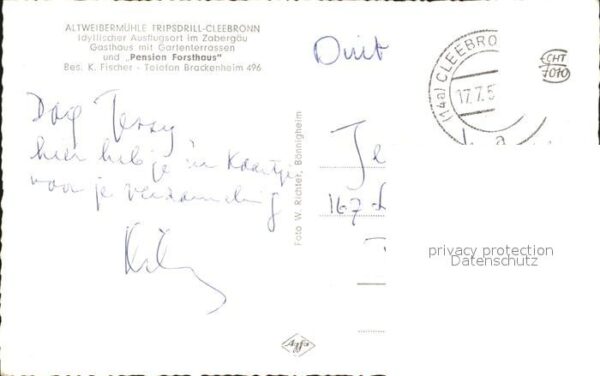 ALTWEIBERMÜHLE TRIPSDRILL-CLEEBRONN
Idyllischer Ausflugsort im Zabergäu
Gasthaus mit Gartenterrassen
und „Pension Forsthaus"
Bes. K. Fischer - Telefon Brackenheim 496
Dag
hier heb je 'n Kaartje
voor je verzameling
Foto W. Richter, Bönnigheim
Agfa
(14a) CLEEBRO
17.7.5
a
ECHT
7070
167
privacy protection
Datenschutz